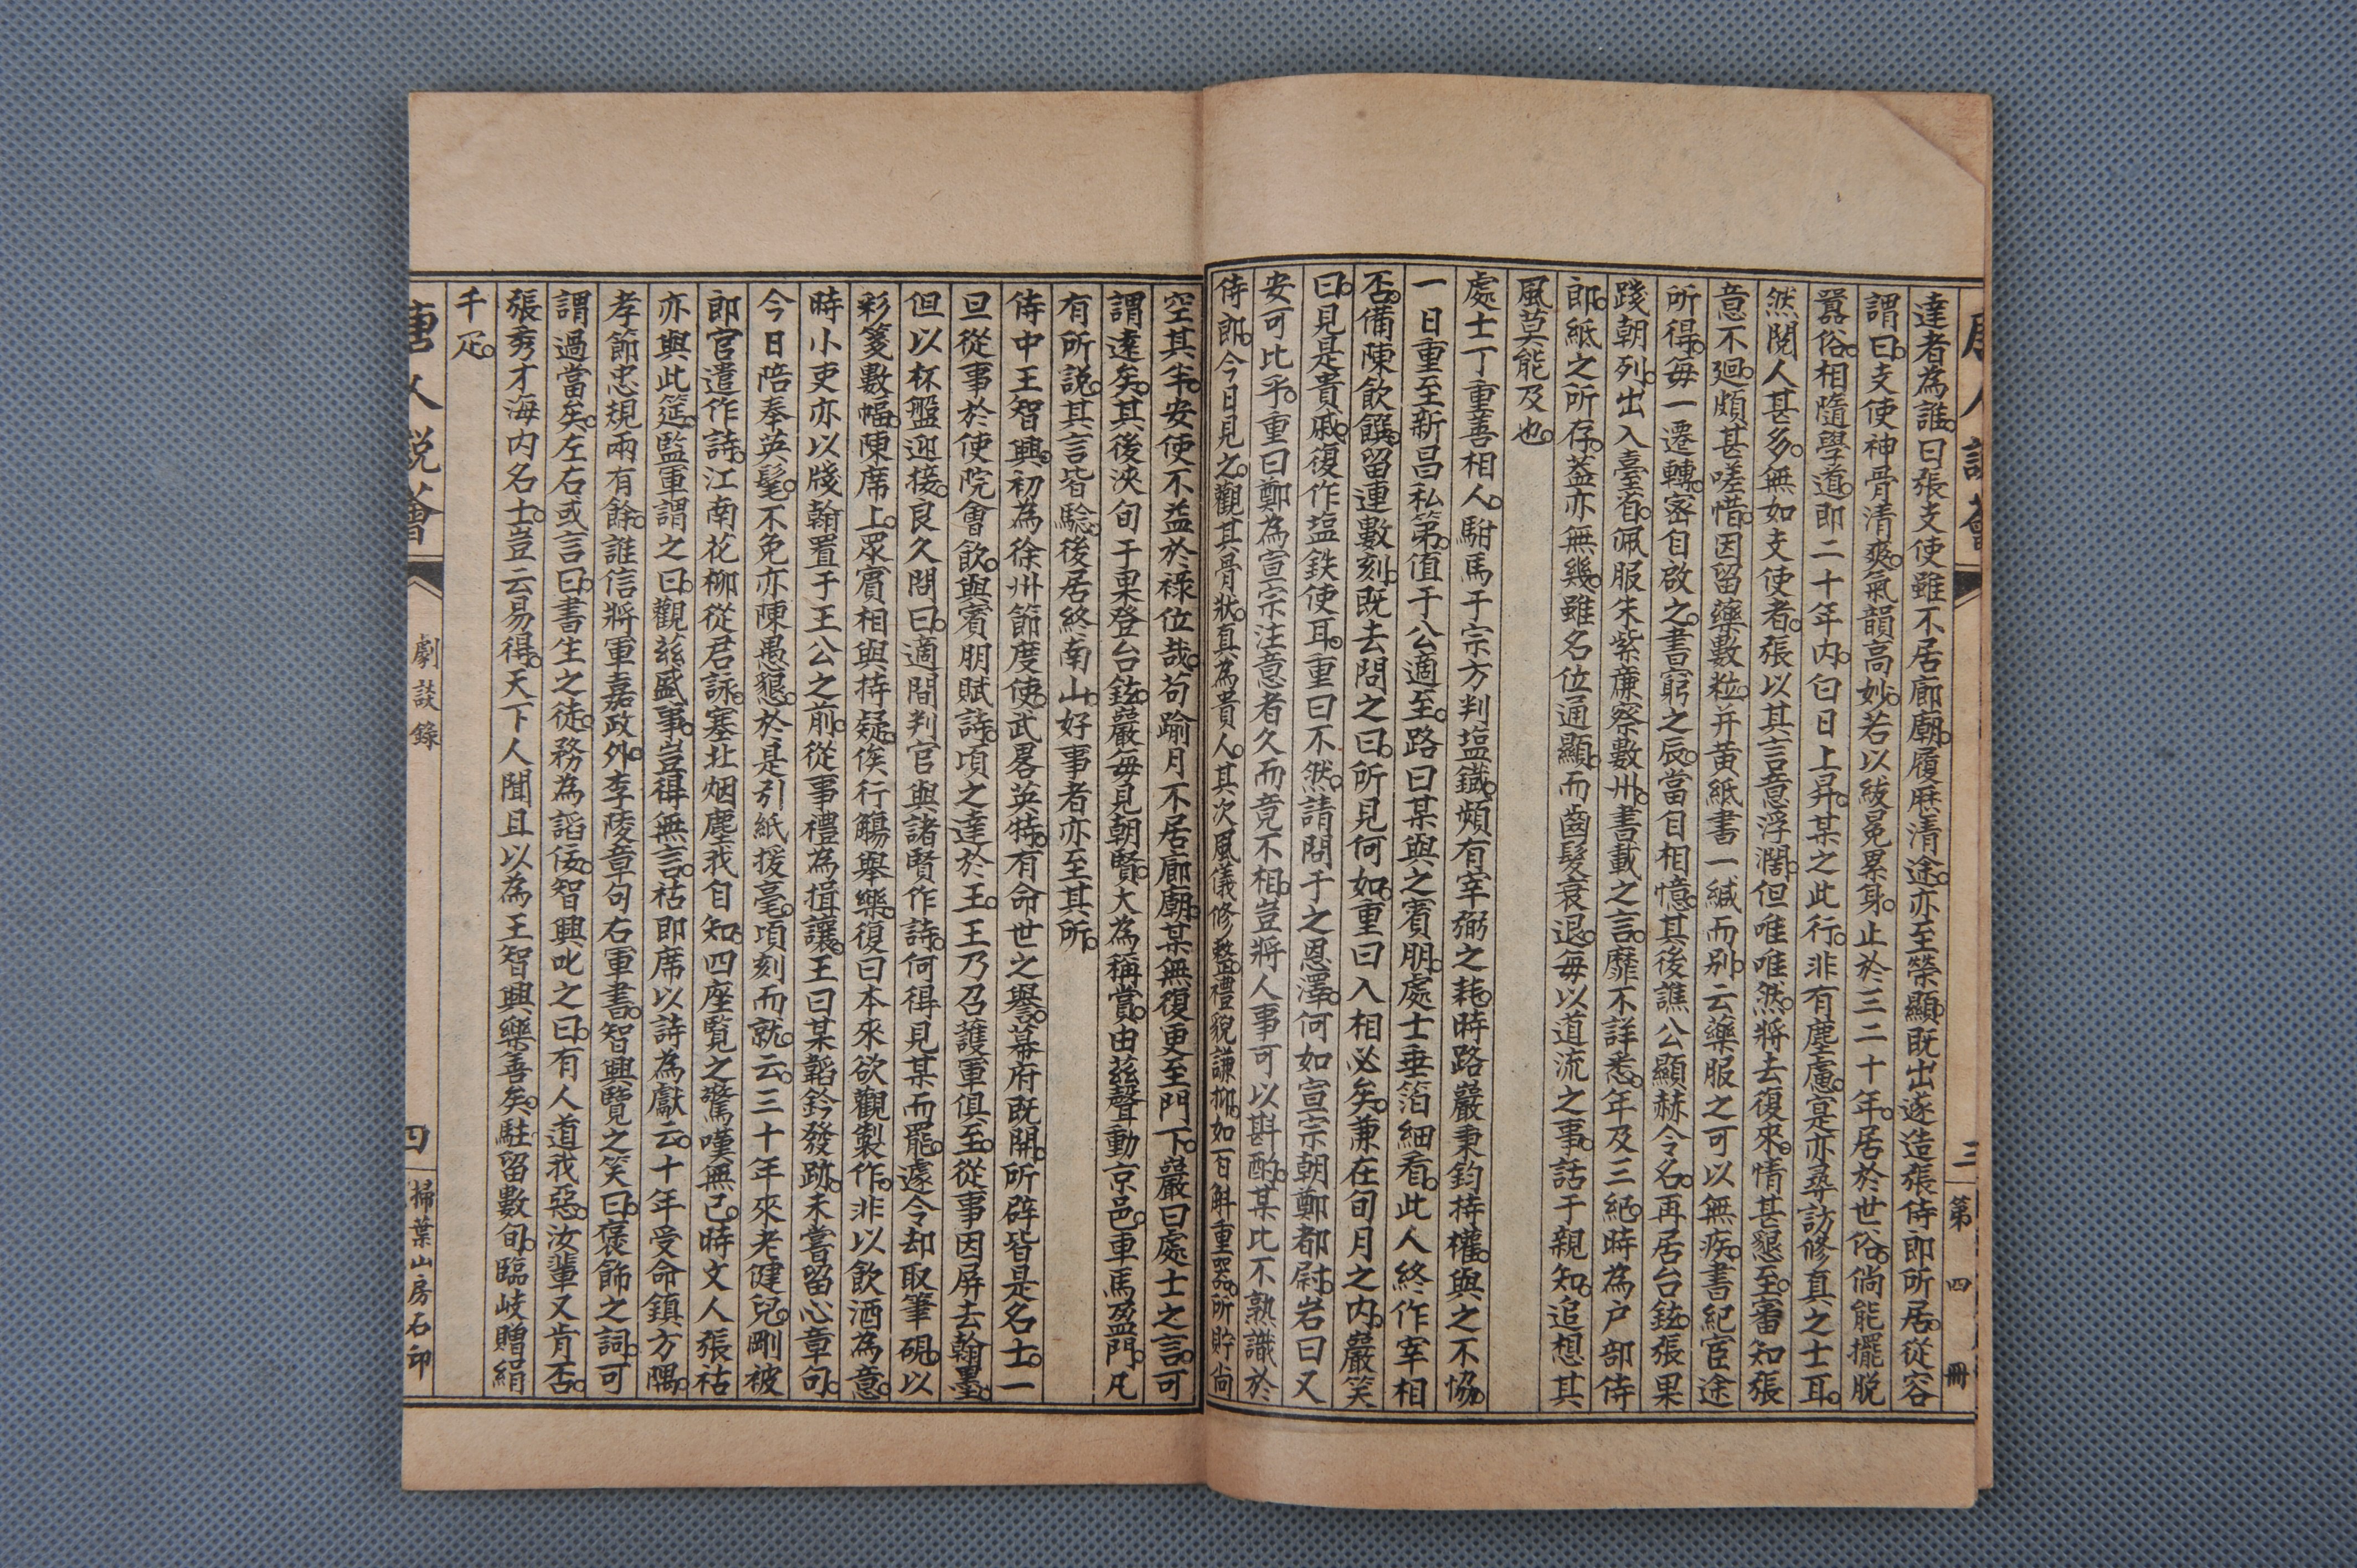 唐人說薈
三
第四冊
達者為誰。曰張支使雖不居廊廟。履歷清途。亦至榮顯。既出遂造張侍郎所居。從容
謂曰。支使神骨清爽。氣韻高妙。若以綾冕累身。止於三二十年。居於世俗。倘能擺脫
囂俗。相隨學道。即二十年內。白日上昇。某之此行。非有塵慮。寔亦尋訪修真之士耳。
然閱人甚多。無如支使者。張以其言意浮濶。但唯唯然。將去復來。情甚懇至。審知張
意不廻。頗甚嗟惜。因留藥數粒。并黃紙書一緘而别。云藥服之可以無疾。書紀宦途
所得。每一遷轉。密自啟之。書窮之辰。當自相憶。其後譙公顯赫令名。再居台鉉。張果
踐朝列。出入臺省。佩服朱紫。廉察數州。書載之言。靡不詳悉。年及三紀。時為户部侍
郎。紙之所存。葢亦無幾。雖名位通顯。而齒髮衰退。每以道流之事。話于親知。追想其
風莫能及也。
處士丁重善相人。駙馬于宗方判塩鐵。頻有宰弼之耗。時路巖秉鈞持權。與之不協。
一日重至新昌私第。值于公適至。路曰某與之賓朋。處士垂箔細看。此人終作宰相
否。備陳飲饌。留連數刻。既去問之曰。所見何如。重曰入相必矣。兼在旬月之內。巖笑
曰。見是貴戚。復作塩鉄使耳。重曰不然。請問于之恩澤。何如宣宗朝鄭都尉。岩曰又
安可比乎。重曰鄭為宣宗注意者久。而竟不相。豈將人事可以斟酌。某比不熟識於
侍郎。今日見之。觀其骨狀。真為貴人。其次風儀修整。禮貌謙抑。如百斛重器。所貯尚
空其半。安使不益於祿位哉。茍踰月不居廊廟。某無復更至門下。巖曰處士之言。可
謂達矣。其後浹旬于果登台鉉。巖每見朝賢。大為稱賞。由茲聲動京邑。車馬盈門。凡
有所說。其言皆驗。後居終南山。好事者亦至其所。
侍中王智興。初為徐州節度使。武畧英特。有命世之譽。幕府既開。所辟皆是名士。一
旦從事於使院會飲。與賓朋賦詩。頃之達於王。王乃召護軍俱至。從事因屏去翰墨。
但以杯盤迎接。良久問曰。適間判官與諸賢作詩。何得見某而罷。遽令却取筆硯。以
彩箋數幅。陳席上。眾賓相與持疑。俟行觴舉樂。復曰本來欲觀製作。非以飲酒為意。
時小吏亦以牋翰置于王公之前。從事禮為揖讓。王曰某韜鈐發跡。未嘗留心章句。
今日陪奉英髦。不免亦陳愚懇。於是引紙援毫。頃刻而就。云。三十年來老健兒。剛被
郎官遣作詩。江南花柳從君詠。塞北烟塵我自知。四座覧之驚嘆無已。時文人張祜
亦與此筵。監軍謂之曰。觀兹盛事。豈得無言。祜即席以詩為獻。云。十年受命鎮方隅。
孝節忠規兩有餘。誰信將軍嘉政外。李陵章句右軍書。智興覽之笑曰。褒飾之詞。可
謂過當矣。左右或言曰。書生之徒。務為謟佞。智興叱之曰。有人道我惡。汝輩又肯否。
張秀才海内名士。豈云易得。天下人聞且以為王智興樂善矣。駐留數旬。臨岐贈絹
千疋。
唐人說薈
劇談錄
四
掃葉山房石印